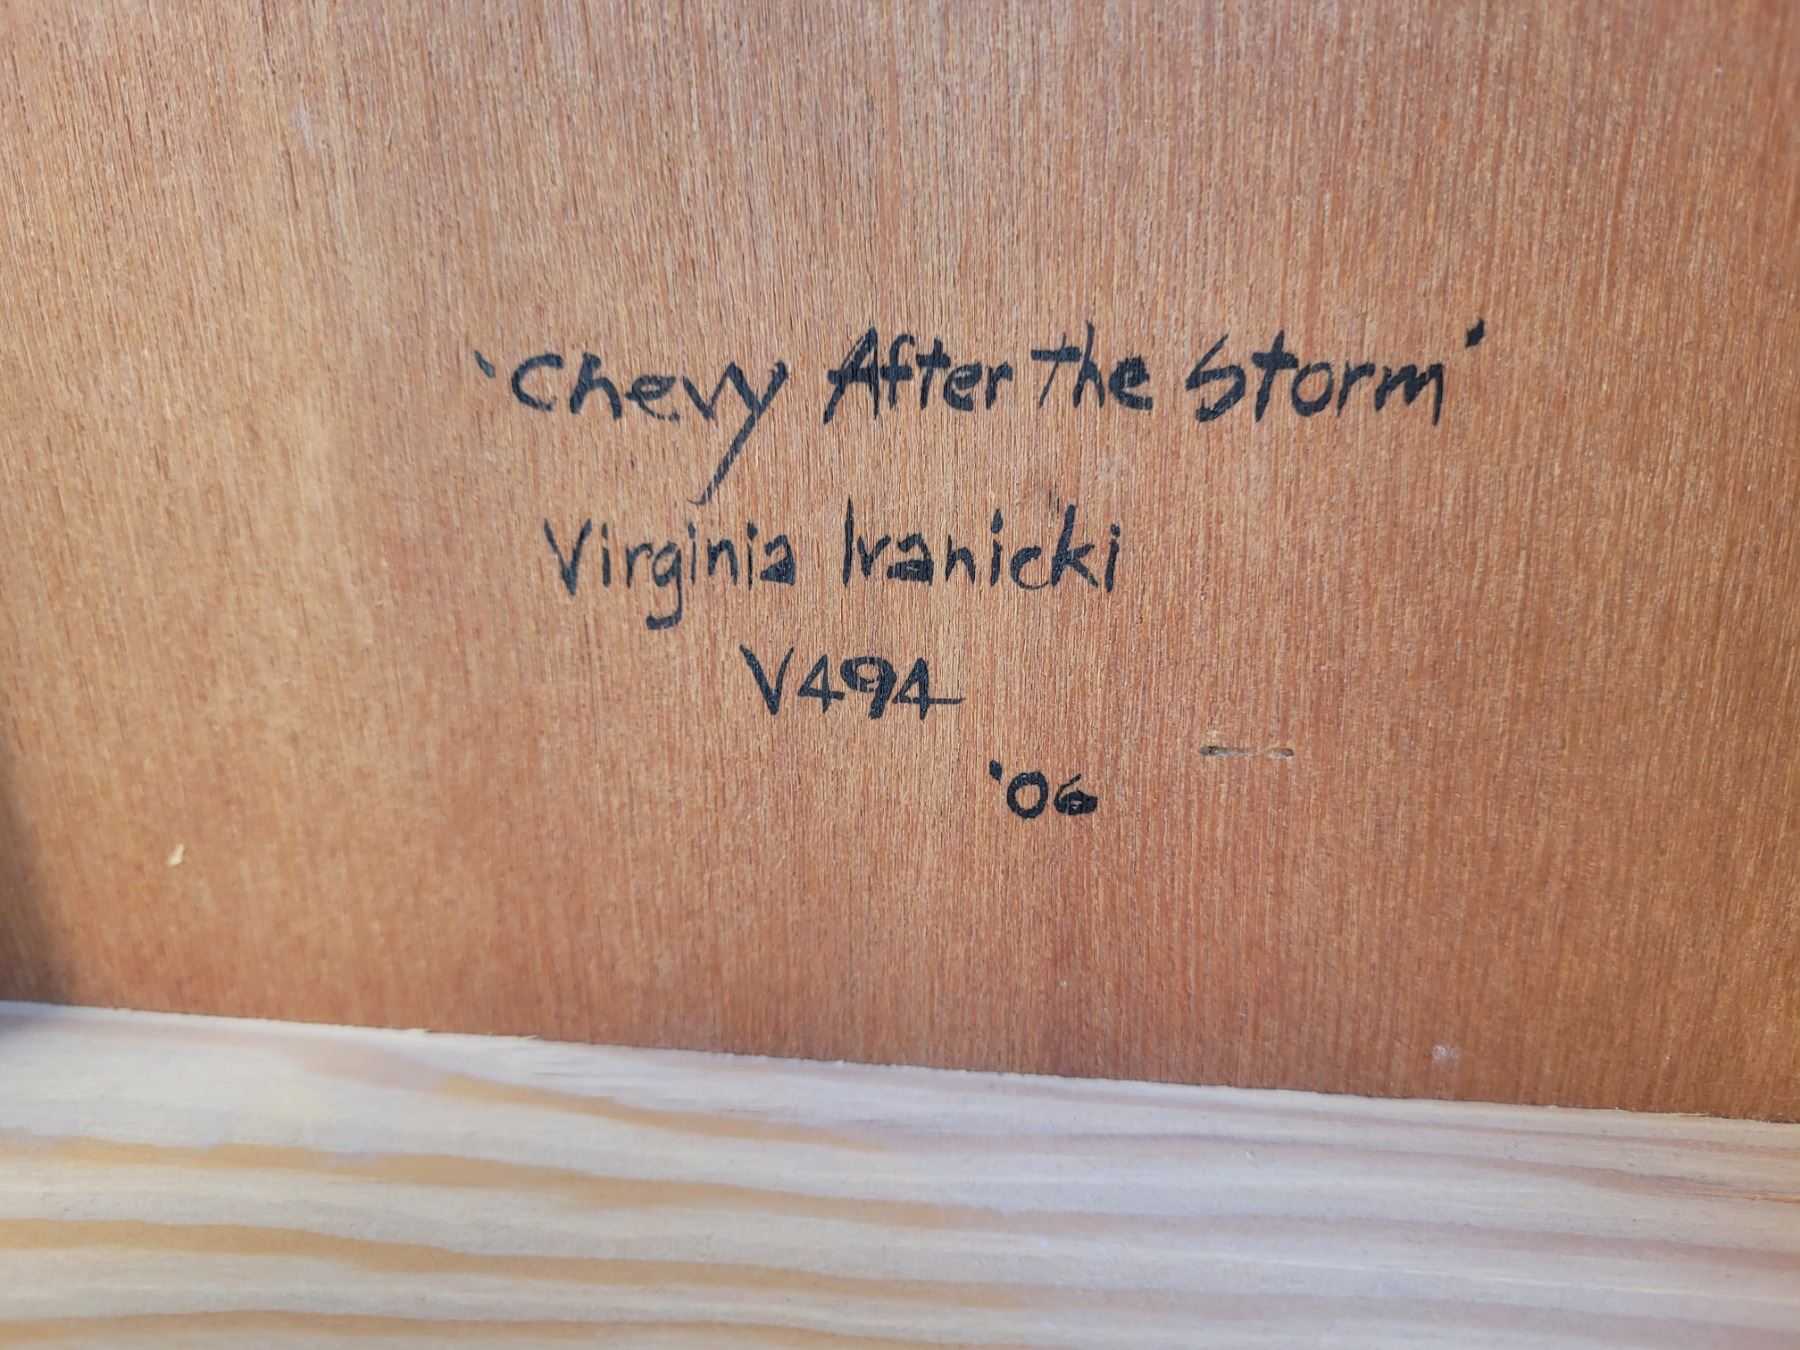 'Chevy After the Storm'
Virginia Ivanicki
V494
'06